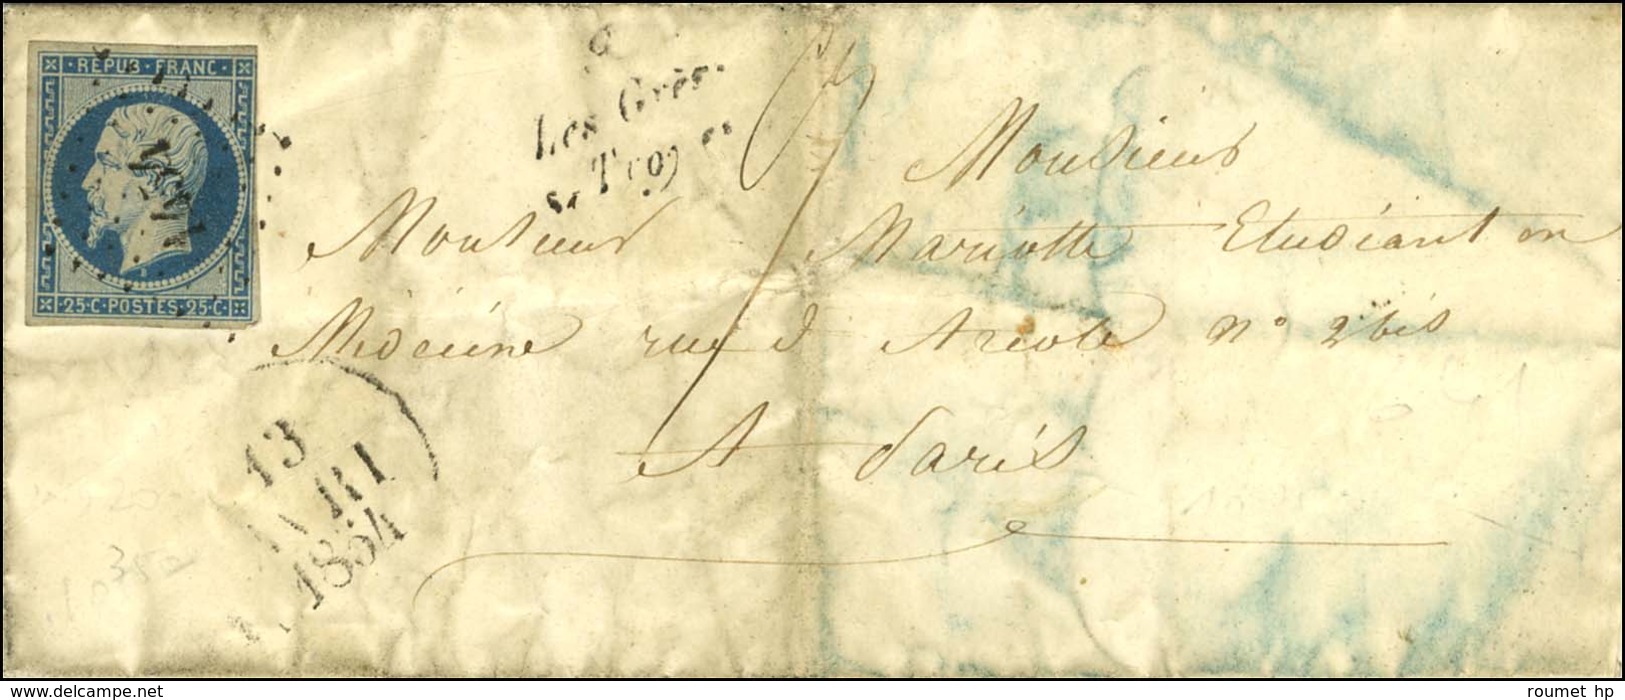 REPUB·FRANC·
25·C·POSTES·25·C
Les Grès.
s. Troy
Monsieur
Monsieur Mariotte Etudiant en
Médécine rue d Arcole n° 2 bis
A Paris
13
AVRI
1854
www.delcampe.net
roumet hp